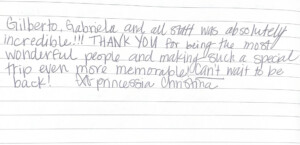 Gilberto, Gabriela and all staff was absolutely
incredible!!! THANK YOU for being the most
wonderful people and making such a special
trip even more memorable! Can't wait to be
back! princessia Christina